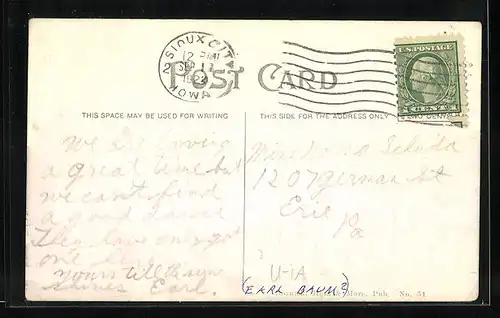 SIOUX CITY
12 PM
SEP 11
1922
IOWA
2
U.S. POSTAGE
1 CENT 1
POST CARD
THIS SPACE MAY BE USED FOR WRITING
THIS SIDE FOR THE ADDRESS ONLY
We are having
a great time but
we can't find
a good dance
They have only got
one
yours till the sun
shines Earl.
Miss
1207 German St
Erie
Pa
U-iA
(EARL BAUM?)
Pub. No. 51